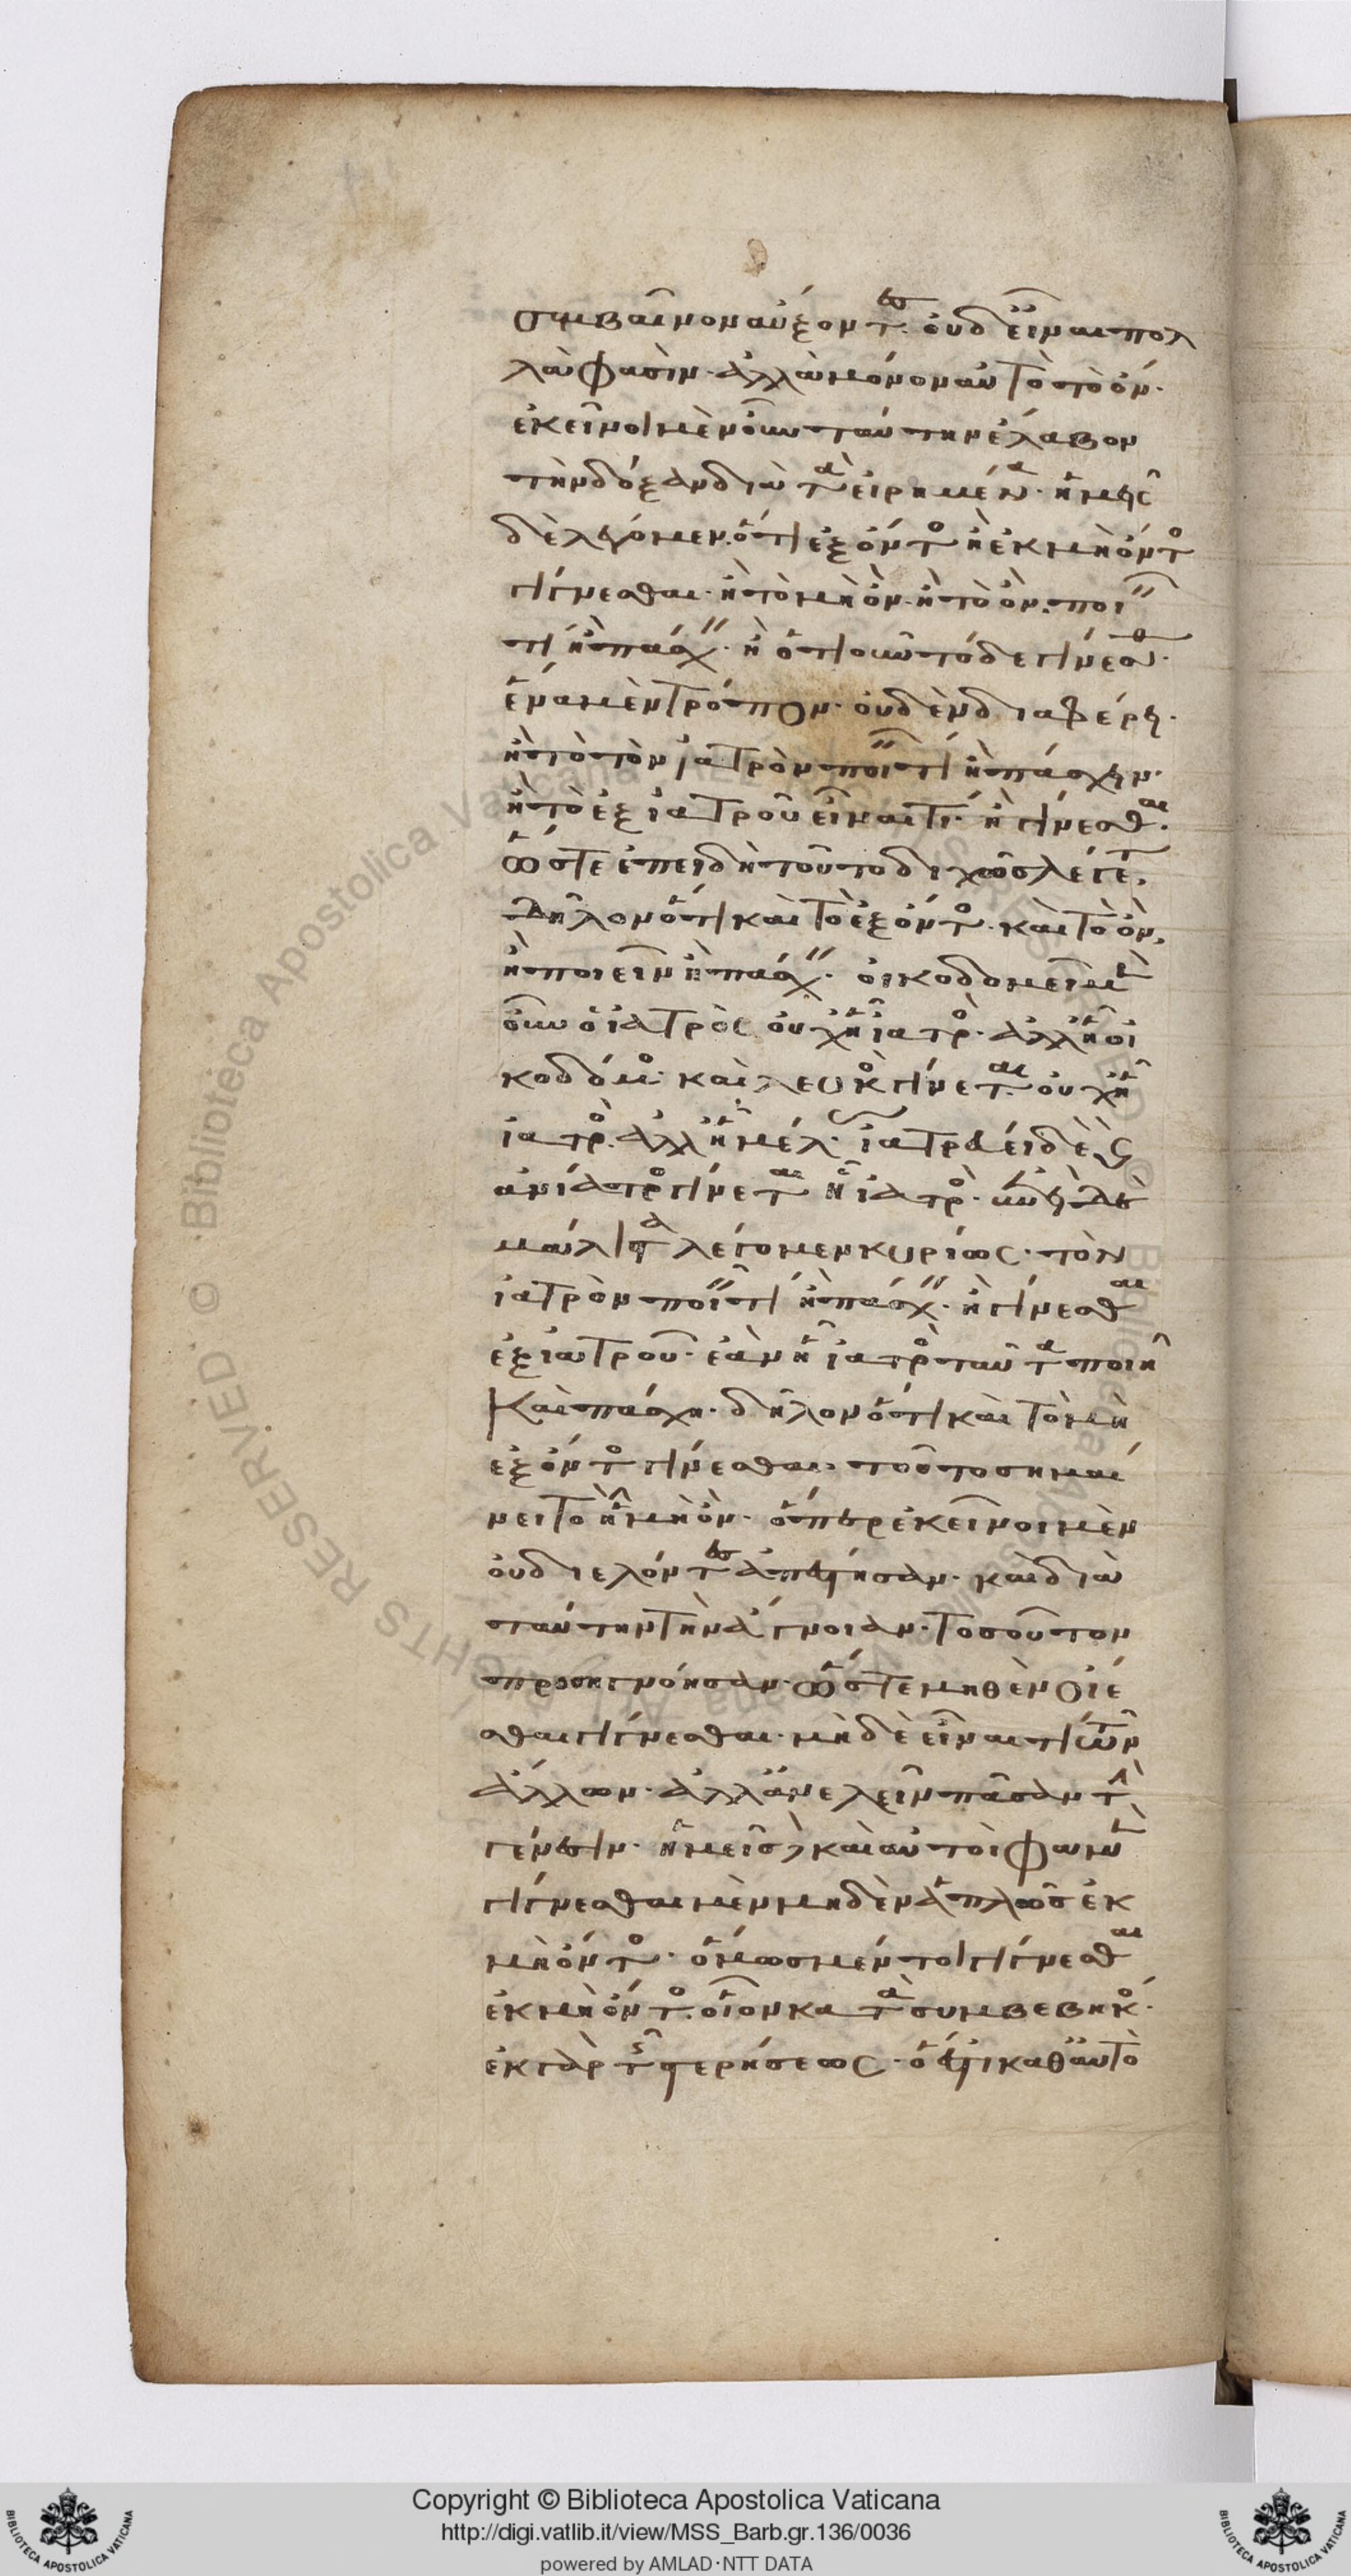 συμβαῖνον αὔξοντες οὐδ' εἶναι πολ
λὰ φασὶν· ἀλλὰ μόνον αὐτὸ τὸ ὄν·
ἐκεῖνοι μὲν οὖν ταύτην ἔλαβον
τὴν δόξαν διὰ τὰ εἰρημένα· ἡμεῖς
δὲ λέγομεν ὅτι ἐξ ὄντος ἢ ἐκ μὴ ὄντος
γίγνεσθαι· ἢ τὸ μὴ ὂν· ἢ τὸ ὂν ποιεῖν
τι ἢ πάσχειν· ἢ ὁτιοῦν τόδε γίνεσθαι·
ἕνα μὲν τρόπον· οὐδὲν διαφέρει·
ἢ τὸ τὸν ἰατρὸν ποιεῖν τι ἢ πάσχειν·
ἢ τὸ ἐξ ἰατροῦ εἶναι τι· ἢ γίνεσθαι·
ὥστε ἐπειδὴ τοῦτο διχῶς λέγεται,
δῆλον ὅτι καὶ τὸ ἐξ ὄντος· καὶ τὸ ὂν,
ἢ ποιεῖν ἢ πάσχειν· οἰκοδομεῖ μὲν
οὖν ὁ ἰατρὸς οὐχ ἧ ἰατρὸς· ἀλλ' ἧ οἰ
κοδόμος· καὶ λευκὸς γίνεται οὐχ ἧ
ἰατρὸς ἀλλ' ἧ μέλας· ἰατρεύει δὲ καὶ
ἀνίατρος γίνεται ἧ ἰατρὸς· ἐπεὶ δὲ
μάλιστα λέγομεν κυρίως· τὸν
ἰατρὸν ποιεῖν τι ἢ πάσχειν· ἢ γίνεσθαι
ἐξ ἰατροῦ· ἐὰν ἧ ἰατρὸς ταῦτα ποιῆ
καὶ πάσχη· δῆλον ὅτι καὶ τὸ μὴ
ἐξ ὄντος γίνεσθαι· τοῦτο σημαί
νει τὸ ἧ μὴ ὄν· ὅπερ ἐκεῖνοι μὲν
οὐ διελόντες ἀπέστησαν· καὶ διὰ
ταύτην τὴν ἄγνοιαν· τοσοῦτον
προσηγνόησαν· ὥστε μηθὲν οἴε
σθαι γίγνεσθαι· μηδὲ εἶναι τι τῶν
ἄλλων· ἀλλ' ἀνελεῖν πᾶσαν τὴν
γένεσιν· ἡμεῖς δὲ καὶ αὐτοί φαμὲν
γίγνεσθαι μὲν μηδὲν ἁπλῶς ἐκ
μὴ ὄντος· ὅμως μέντοι γίγνεσθαι
ἐκ μὴ ὄντος οἷον κατὰ συμβεβηκός·
ἐκ γὰρ τῆς στερήσεως· ὅ ἐστι καθ' αὑτὸ
Copyright © Biblioteca Apostolica Vaticana
http://digi.vatlib.it/view/MSS_Barb.gr.136/0036
powered by AMLAD·NTT DATA